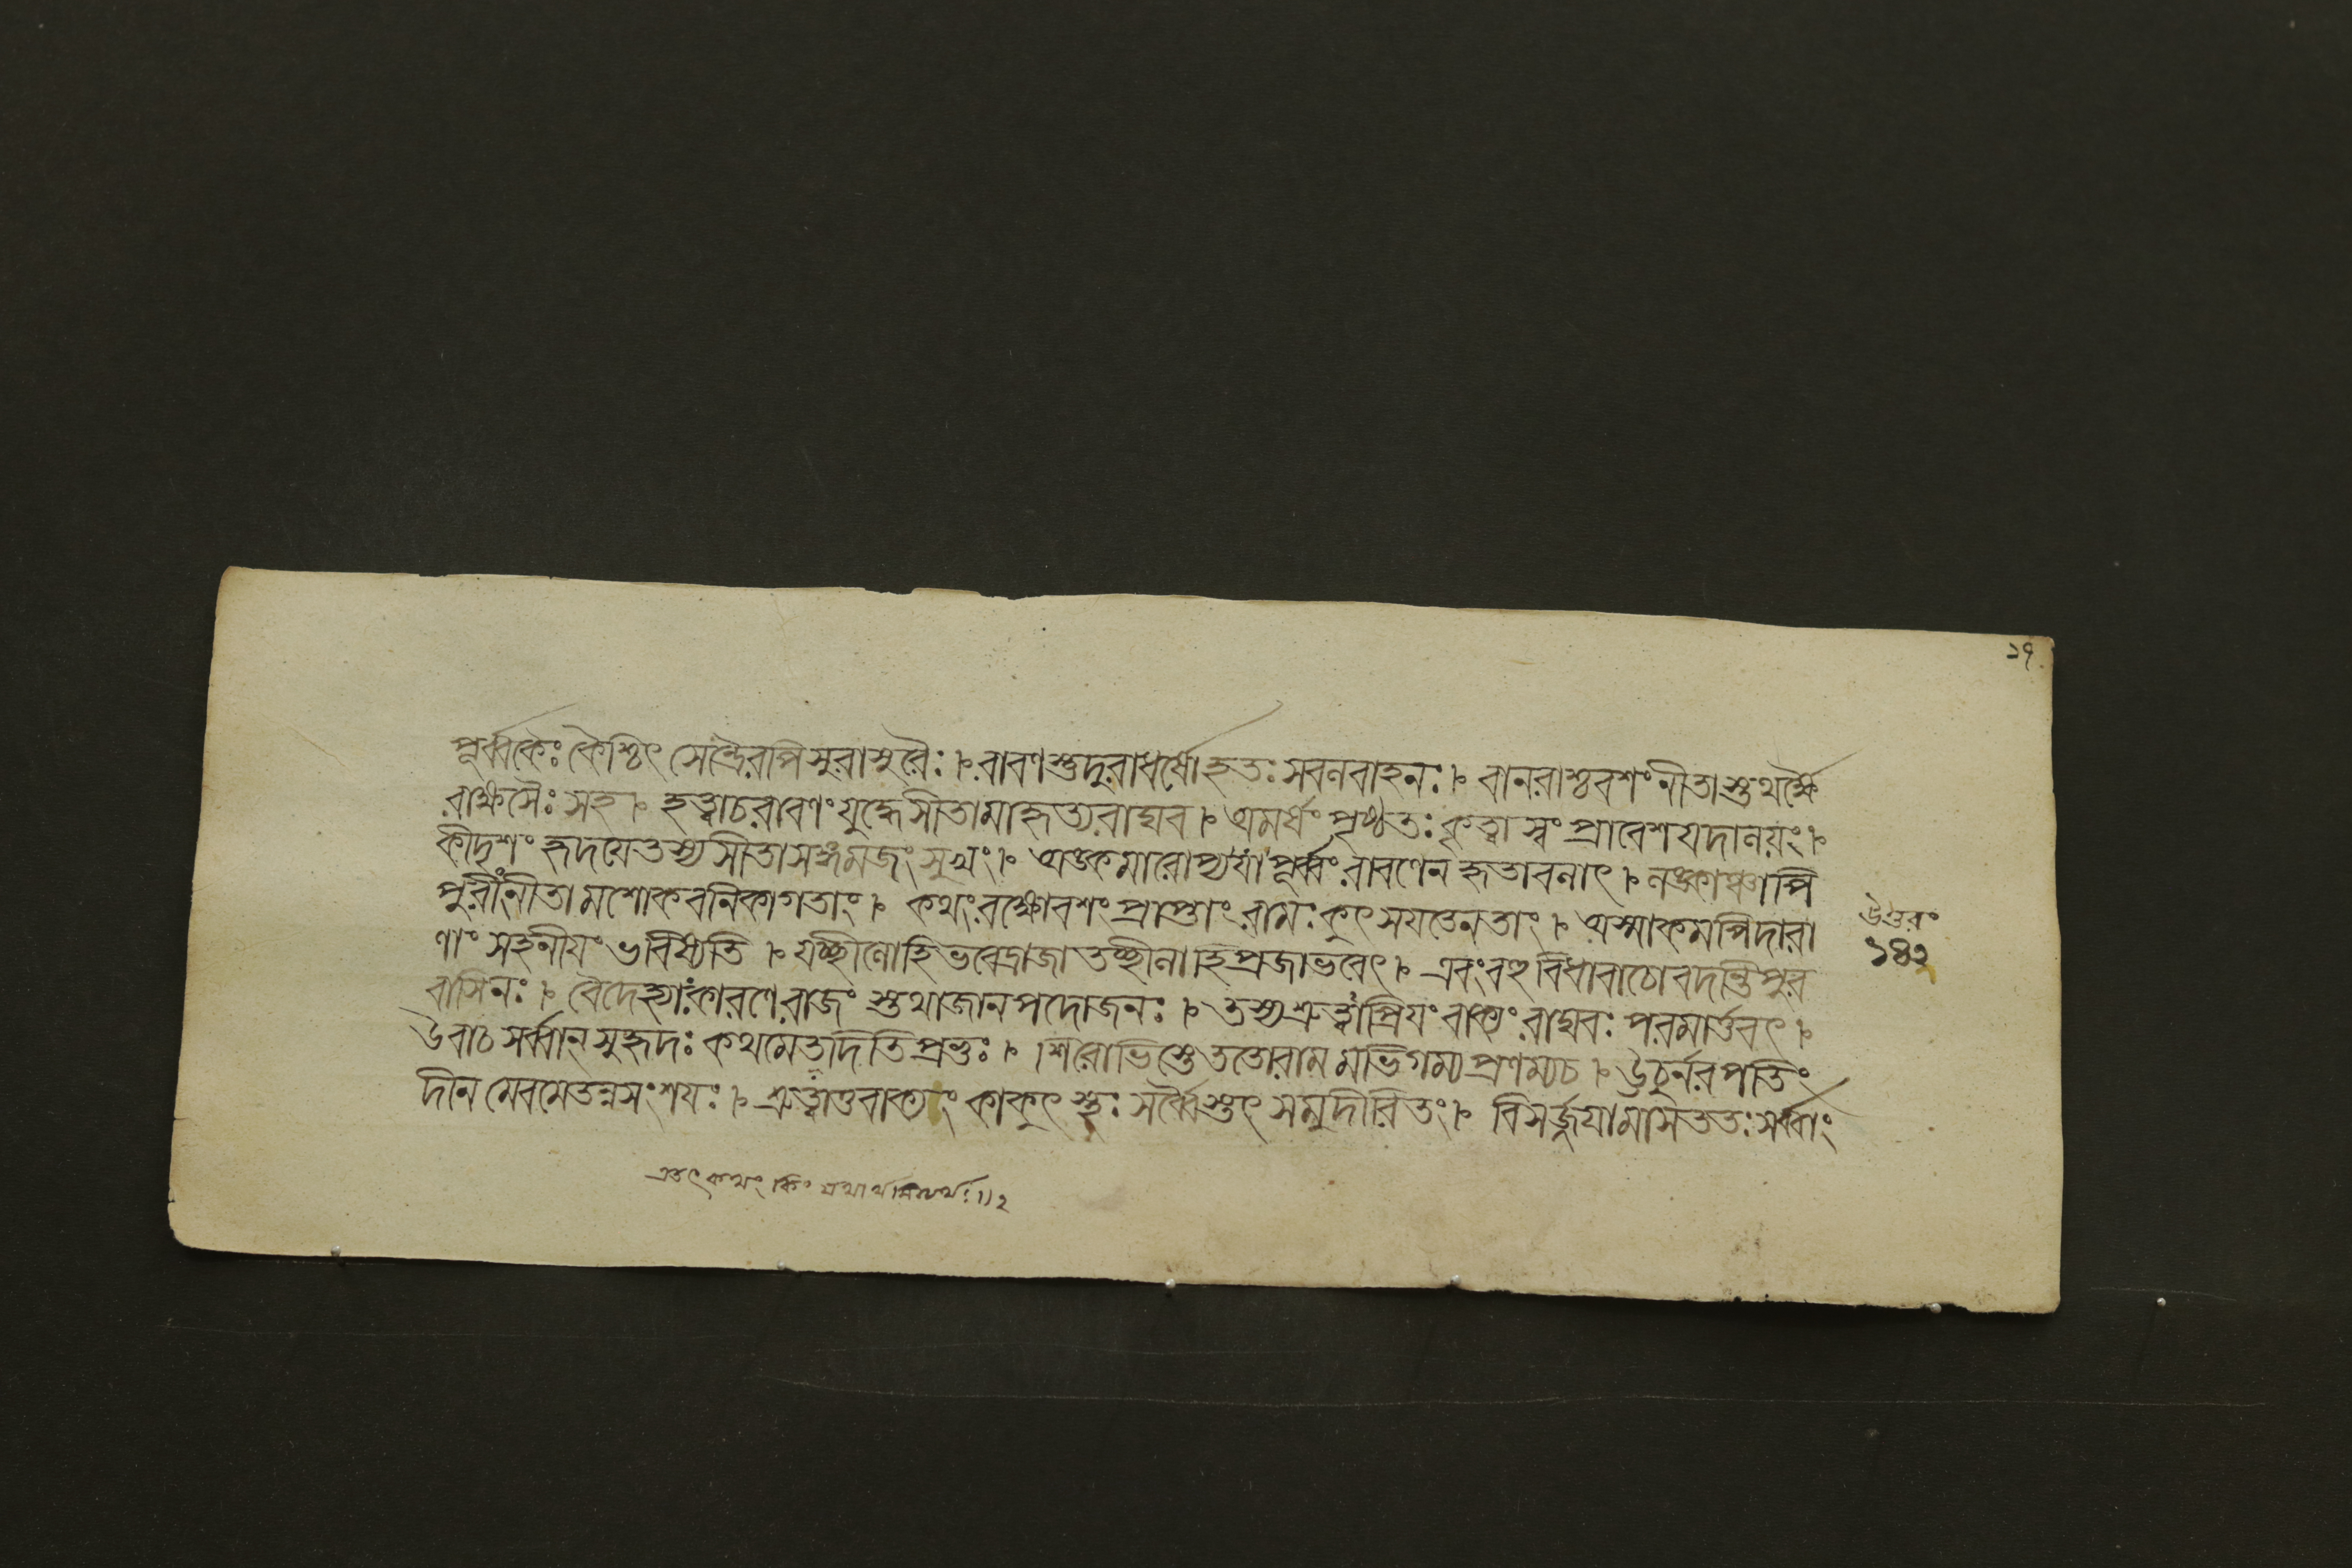 ১৭
পূর্ব্বকৈঃ কৈশ্চিৎ সেন্দ্রৈরপি সুরাসুরৈঃ । রাবণস্তুদুরাধর্ষোহতঃ সবলবাহনঃ । বানরাশ্চবশংনীতাস্তথর্ক্ষৈ
রাক্ষসৈঃ সহ । হত্বাচরাবণং যুদ্ধেসীতামাহৃত্যরাঘব । অমর্ষং পৃষ্ঠতঃ কৃত্বা স্বং প্রাবেশযদালয়ং ।
কীদৃশং হৃদযেতস্যসীতাসঙ্গমজং সুখং । অঙ্কমারোপ্যযাং পূর্ব্বং রাবণেন হৃতাবনাৎ । লঙ্কাঞ্চাপি
পুরীংনীতামশোকবনিকাগতাং । কথংরক্ষোবশং প্রাপ্তাং রামঃ কুৎসযতেনতাং । অস্মাকমপিদারা
উত্তরং
১৪২
ণাং সহনীযং ভবিষ্যতি । যচ্ছীলোহিভবেদ্রাজা তচ্ছীলাহিপ্রজাভবেৎ । এবংবহুবিধাবাচোবদন্তিপুর
বাসিনঃ । বৈদেহ্যাংকারণেরাজং স্তথাজানপদোজনঃ । তস্যশ্রুত্বাপ্রিযং বাক্যং রাঘবঃ পরমার্ত্তবৎ ।
উবাচ সর্ব্বান্ সুহৃদঃ কথমেতাদিতিপ্রভুঃ । শিরোভিস্তেততোরামমভিগম্যপ্রণম্যচ । ঊচুর্নরপতিং
দীনমেবমেতন্নসংশযঃ । শ্রুত্বাতুবাক্যং কাকুৎস্থঃ সর্ব্বৈস্তৎ সমুদীরিতং । বিসর্জ্জযামাসততঃ সর্ব্বাং
এতৎ কথং কিং যথার্থমিত্যর্থঃ ॥ ২